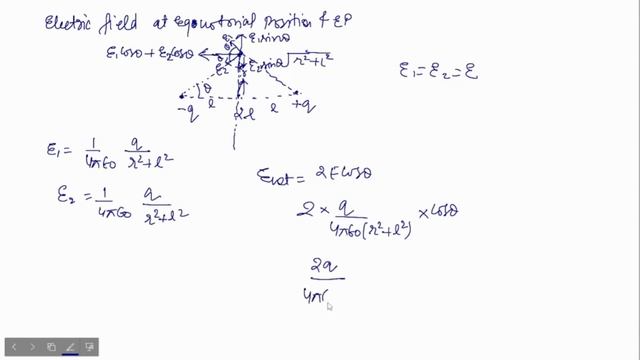 Electric field at Equatorial Position of EP
E₁sinθ
E₁cosθ + E₂cosθ
E₂
E₂sinθ
√r²+l²
E₁ = E₂ = E
θ
-q
l
2l
l
+q
E₁ = 1/4π∈₀ q/r²+l²
E₂ = 1/4π∈₀ q/r²+l²
Enet = 2Ecosθ
2 × q/4π∈₀(r²+l²) × cosθ
2q
4π∈